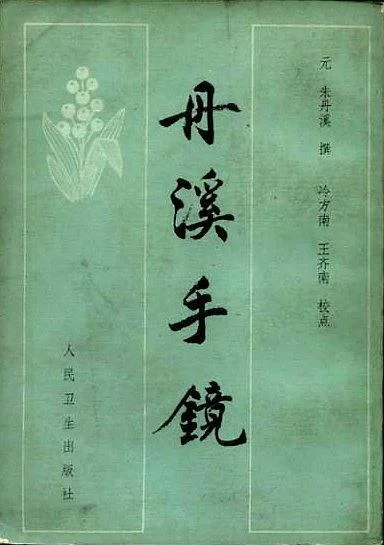 元 朱丹溪 撰 冷方南 王齐南 校点
丹溪手鏡
人民卫生出版社